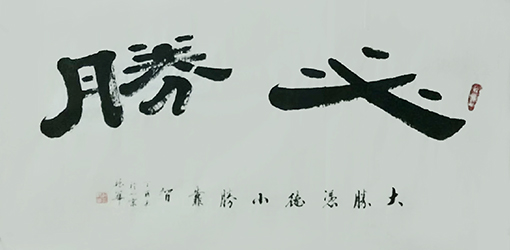 必勝
大勝憑德小勝靠智